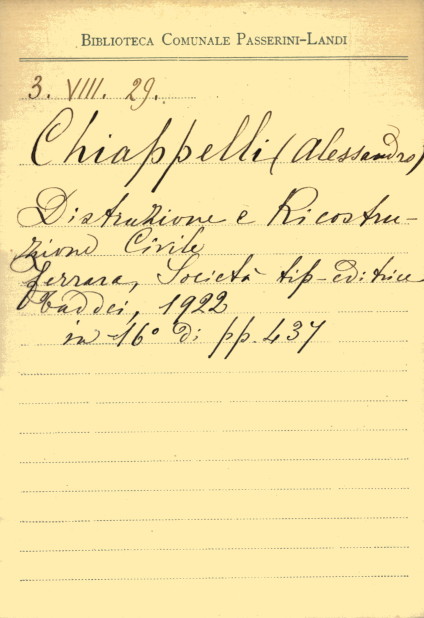 BIBLIOTECA COMUNALE PASSERINI-LANDI
3. VIII. 29.
Chiappelli (Alessandro)
Distruzione e Ricostru-
zione Civile
Ferrara, Società tip-editrice
Taddei, 1922
in 16° di pp. 437